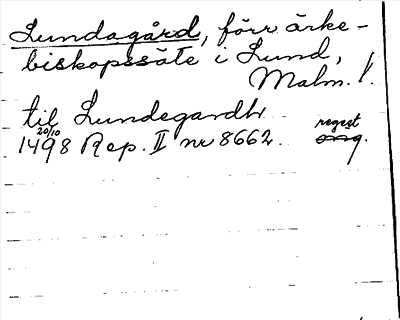 Lundagård, förr ärke-
biskopssäte i Lund,
Malm. l.
til Lundegardh
20/10
1498 Rep. II nr 8662. regest